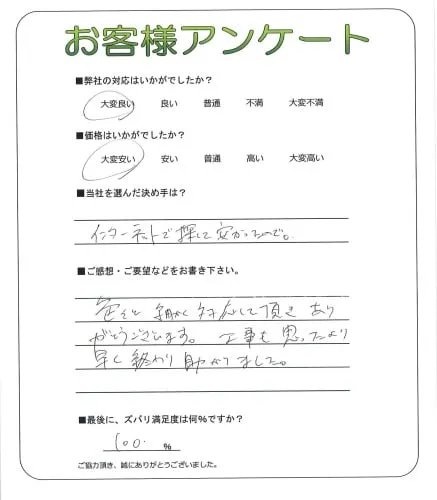 お客様アンケート
■弊社の対応はいかがでしたか？
大変良い 良い 普通 不満 大変不満
■価格はいかがでしたか？
大変安い 安い 普通 高い 大変高い
■当社を選んだ決め手は？
インターネットで探して安かったので。
■ご感想・ご要望などをお書き下さい。
細かく対応して頂きあり
がとうございます。工事も思ったより
早く終わり助かりました。
■最後に、ズバリ満足度は何%ですか？
100. %
ご協力頂き、誠にありがとうございました。